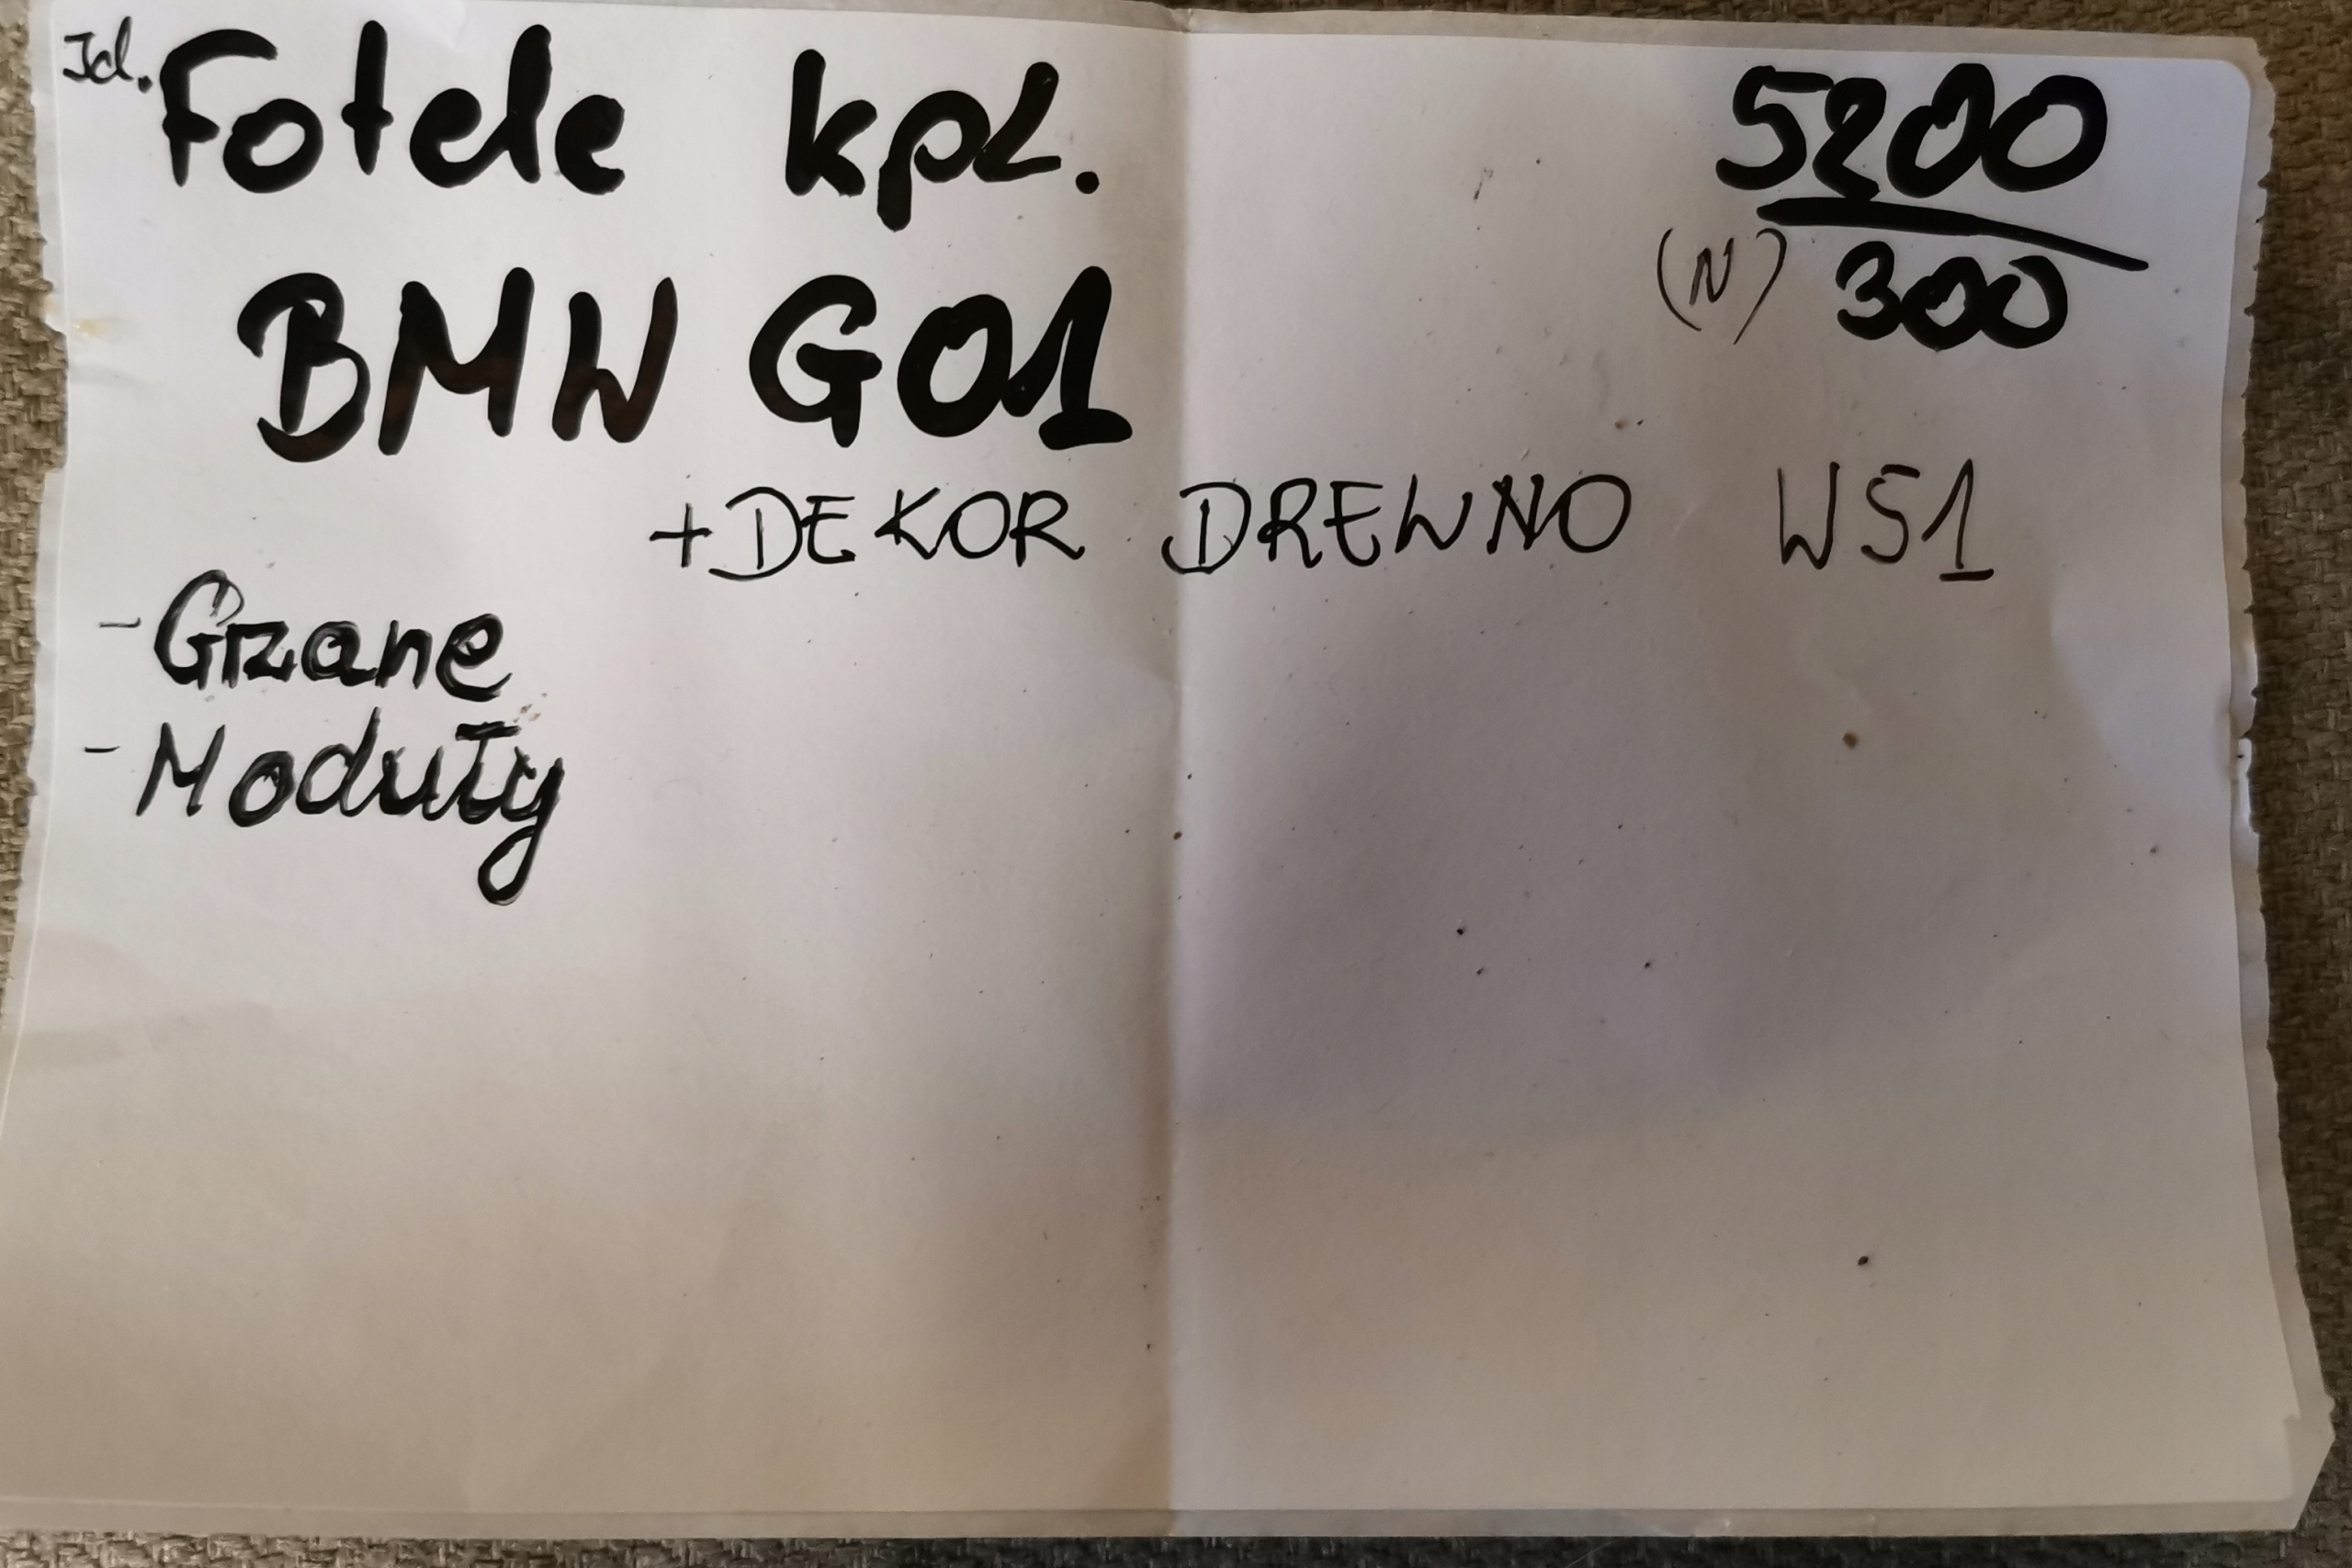 Id. Fotele kpl. 5200
BMW G01 (N) 300
+DEKOR DREWNO W51
- Grzane
- Moduły